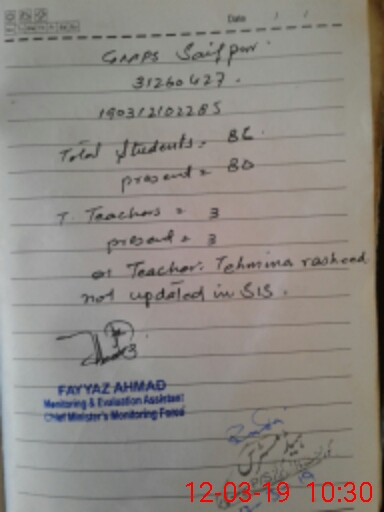 Date
GMPS Saifpur.
31260427.
190312102285
Total Students = 86
present = 80
T. Teachers = 3
present = 3
Teacher: Tehmina rasheed
not updated in SIS.
FAYYAZ AHMAD
Monitoring & Evaluation Assistant
Chief Minister's Monitoring Force
12-03-19 10:30